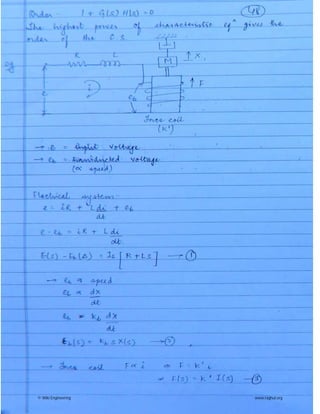 Order 1 + G(s) H(s) = 0
48
The highest power of characteristic eqⁿ gives the
order of the C.S.
eg
R L
M
↑ x
i
e
e_b
↑ F
Force coil
(K')
→ e = Input voltage
→ e_b = voltage
(∝ speed)
Electrical system:
e = iR + L di/dt + e_b
e - e_b = iR + L di/dt
E(s) - E_b(s) = I_s [R + Ls] — ①
→ e_b ∝ speed
e_b ∝ dx/dt
e_b = k_b dx/dt
E_b(s) = k_b s X(s) — ②
→ Force coil F ∝ i ⇒ F = K' i
⇒ F(s) = K' I(s) — ③